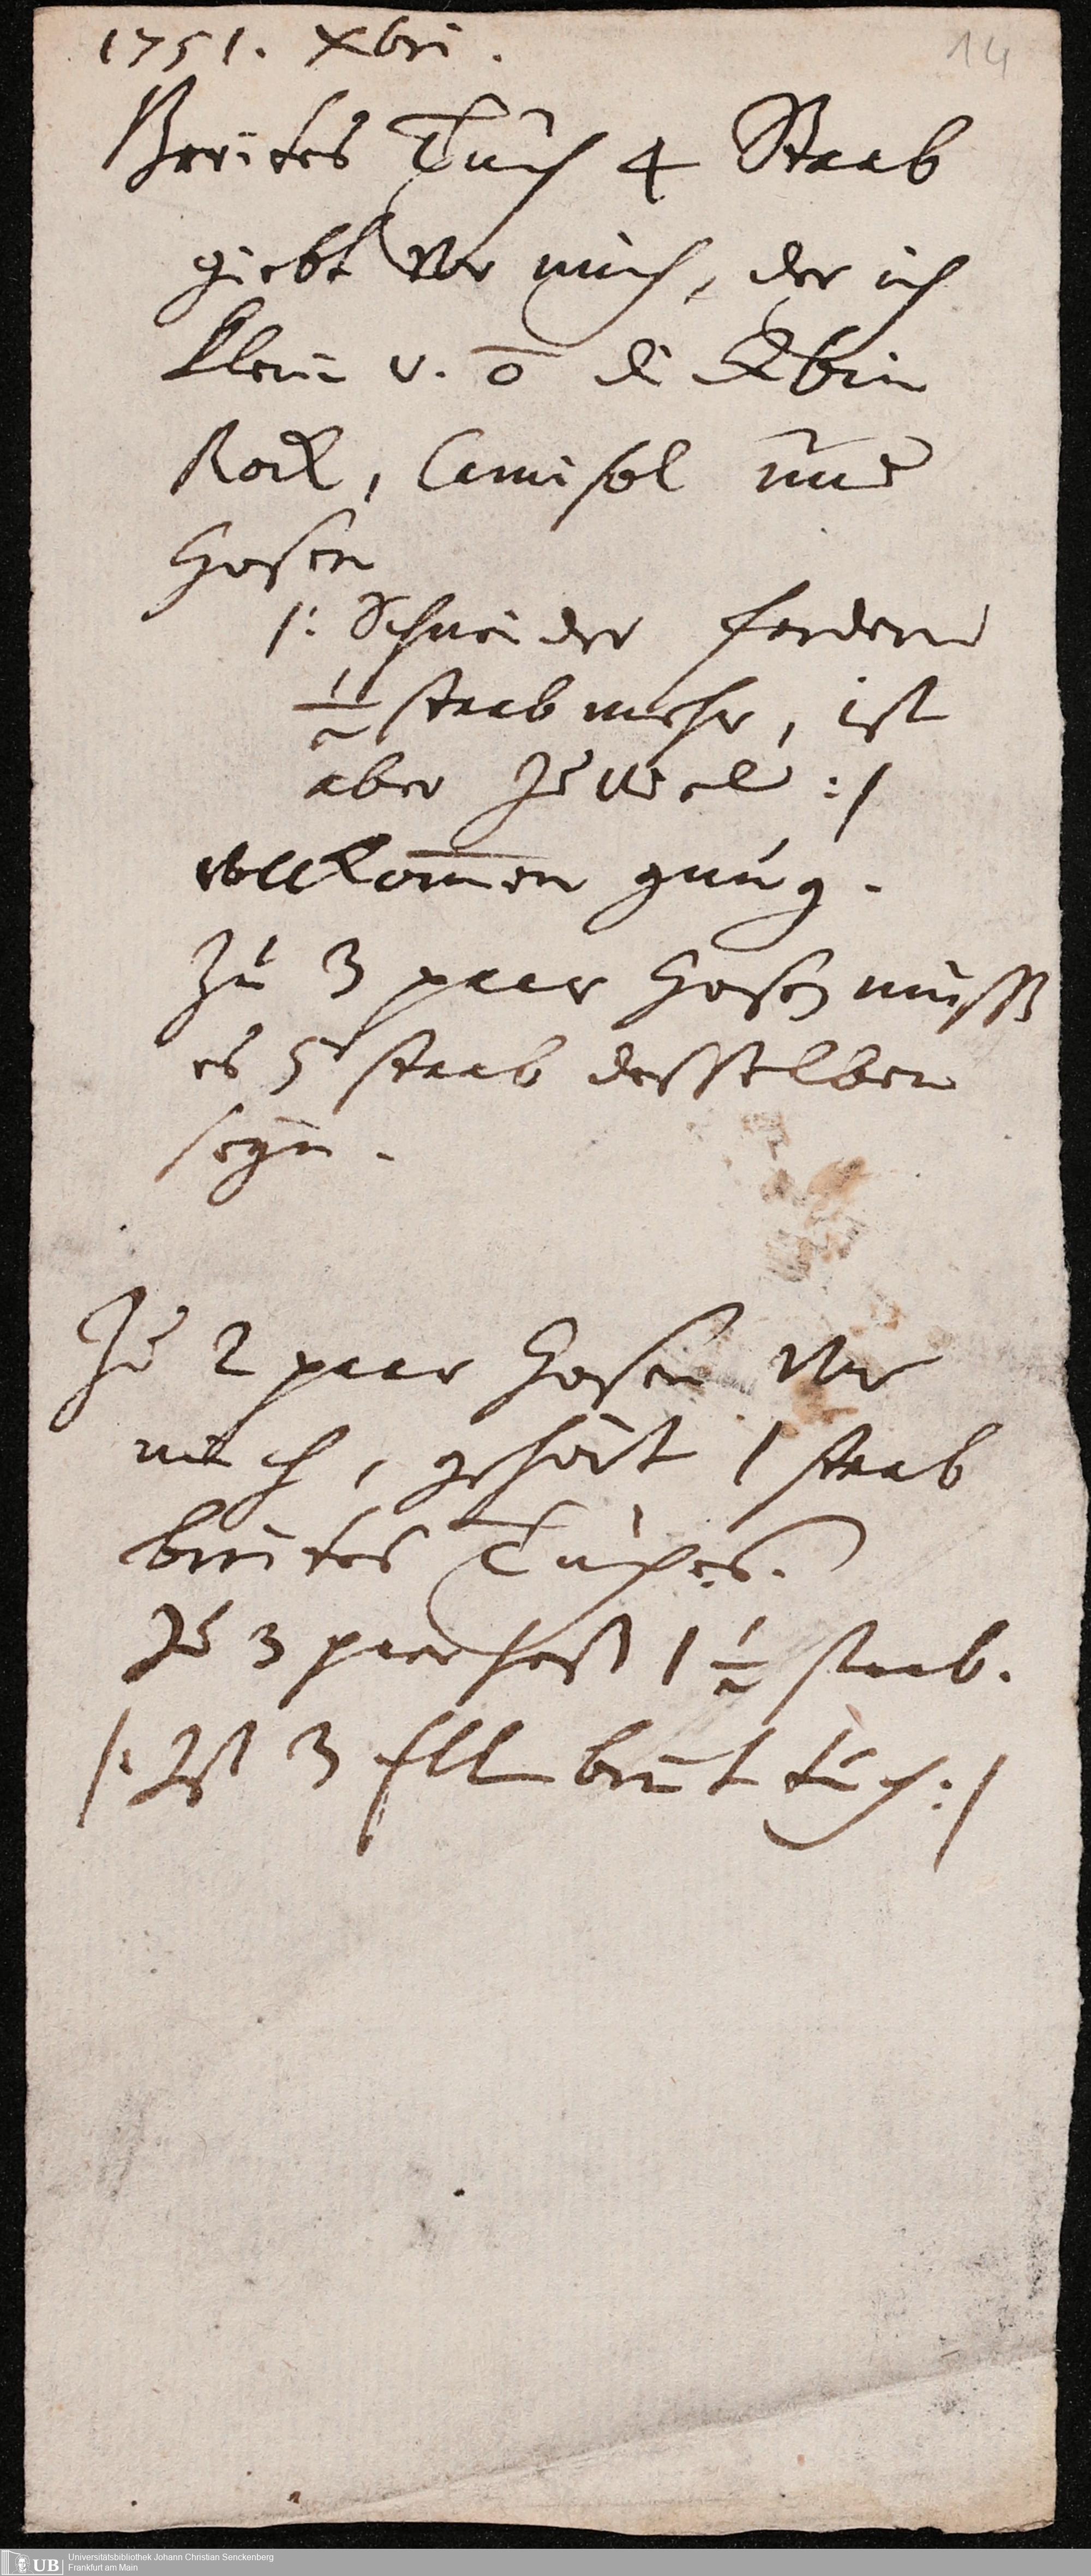 1751. Xbri.
14
Breites Tuch 4 Staab
giebt vor mich, der ich
klein v. o di bin
Rock, Camisol und
Hosen
/: Schneider fordern
1/2 staab mehr, ist
aber zu viel :/
vollkom̅en gnug.
Zu 3 paar Hosen muss
es 5 staab desselben
seyn.
Zu 2 paar Hosen vor
mich, gehört 1 staab
breites Tuches.
Zu 3 paar 1 1/2 staab.
/: Ist 3 Ell breit tuch :/
Universitätsbibliothek Johann Christian Senckenberg
Frankfurt am Main
UB